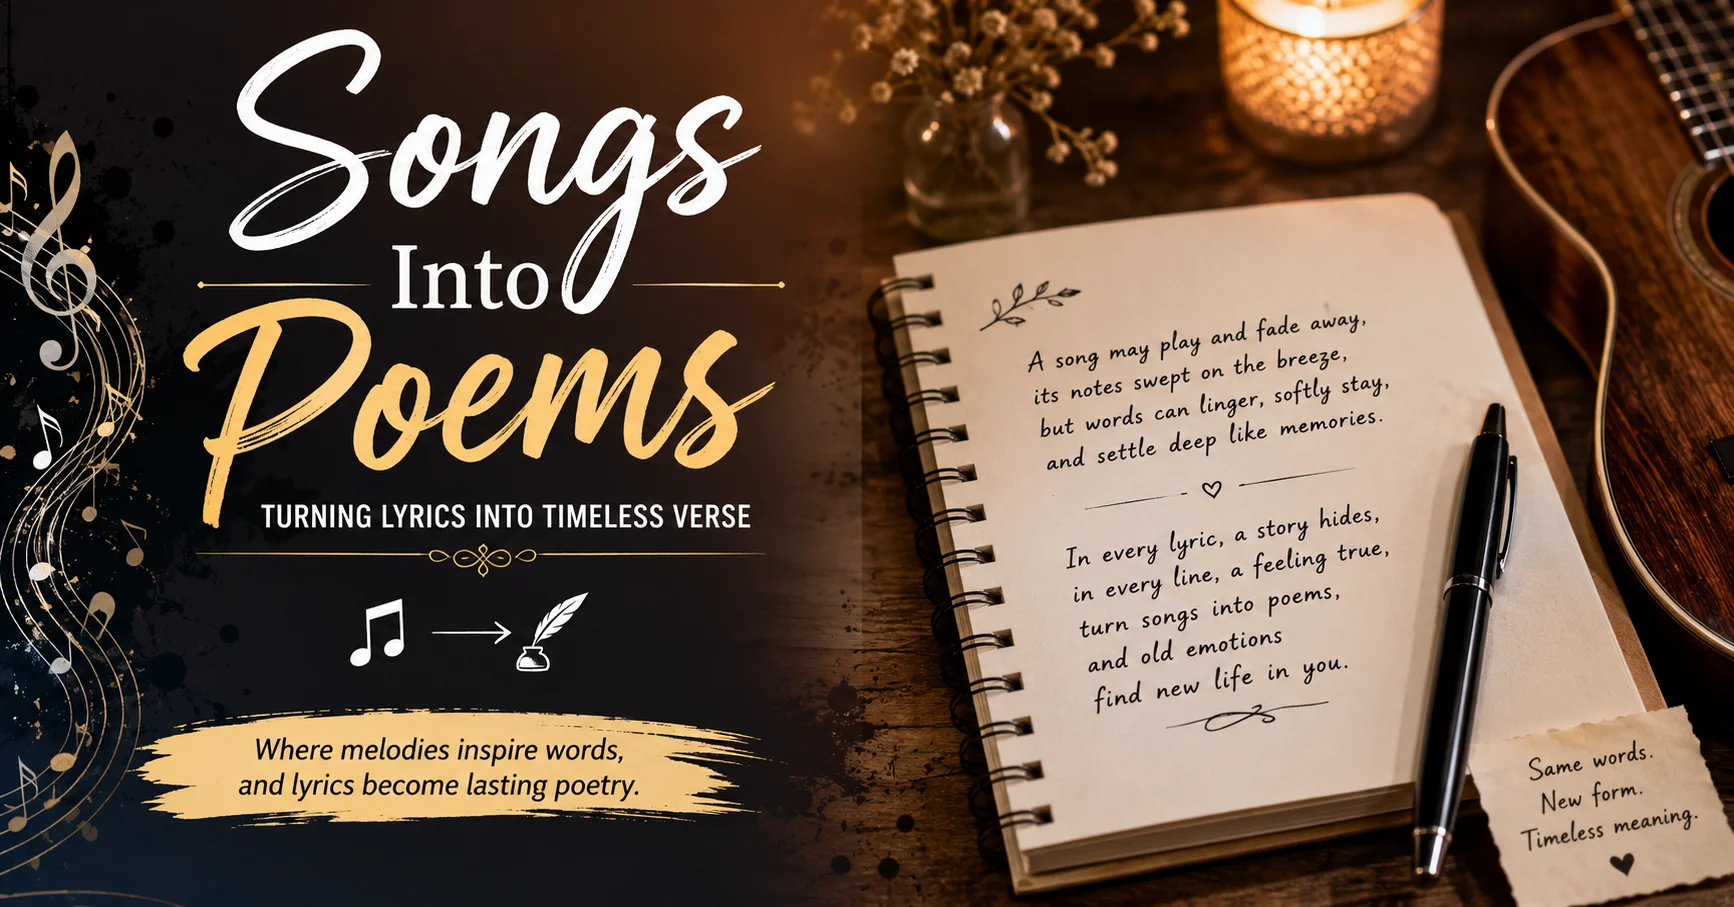 Songs
Into
Poems
TURNING LYRICS INTO TIMELESS VERSE
Where melodies inspire words,
and lyrics become lasting poetry.
A song may play and fade away,
its notes swept on the breeze,
but words can linger, softly stay,
and settle deep like memories.
In every lyric, a story hides,
in every line, a feeling true,
turn songs into poems,
and old emotions
find new life in you.
Same words.
New form.
Timeless meaning.